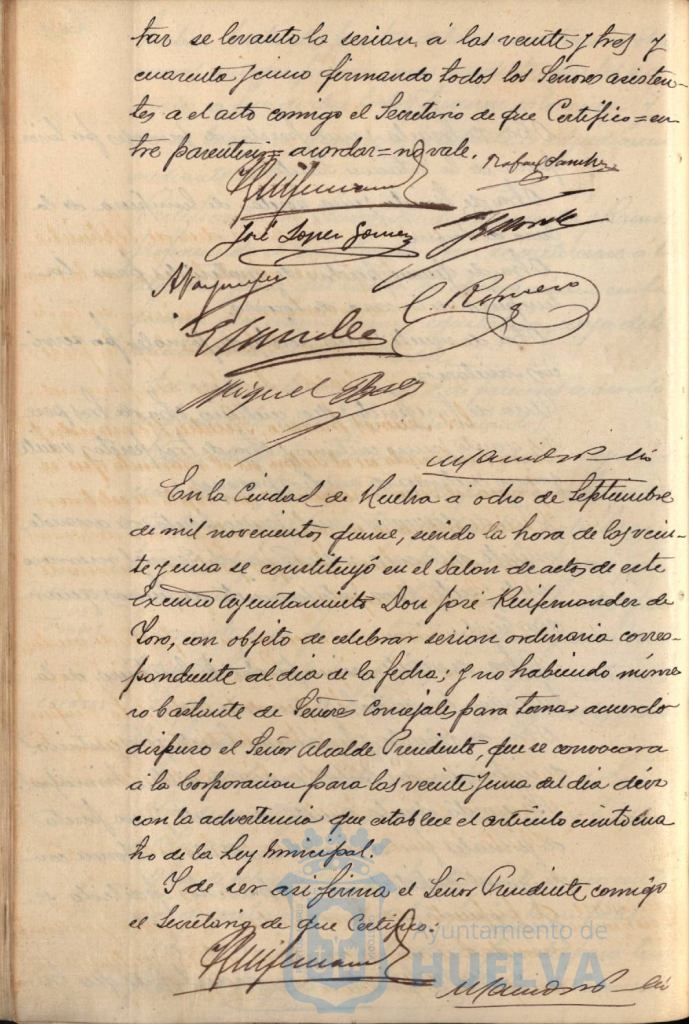 tar se levanto la sesion, á las veinte y tres y
cuarenta y cinco firmando todos los Señores asisten-
tes a el acto comigo el Secretario de que Certifico=en-
tre parentecis=acordar=no vale.
Rafael Sanchez
José Lopez Gomez
C. Romero
Miguel
En la Ciudad de Huelva á ocho de Septiembre
de mil novecientos quince, siendo la hora de las vein-
te y una se constituyó en el Salon de actos de este
Excmo Ayuntamiento Don José Quifernandez de
Toro, con objeto de celebrar sesion ordinaria corres-
pondiente al dia de la fecha; y no habiendo núme-
ro bastante de Señores Concejales para tomar acuerdo
dispuso el Señor Alcalde Presidente, que se convocara
á la Corporacion para las veinte y una del dia diez
con la advertencia que establece el artículo ciento cua
tro de la Ley Municipal.
Y de ser asi firma el Señor Presidente comigo
el Secretario de que Certifico:
Ayuntamiento de
HUELVA